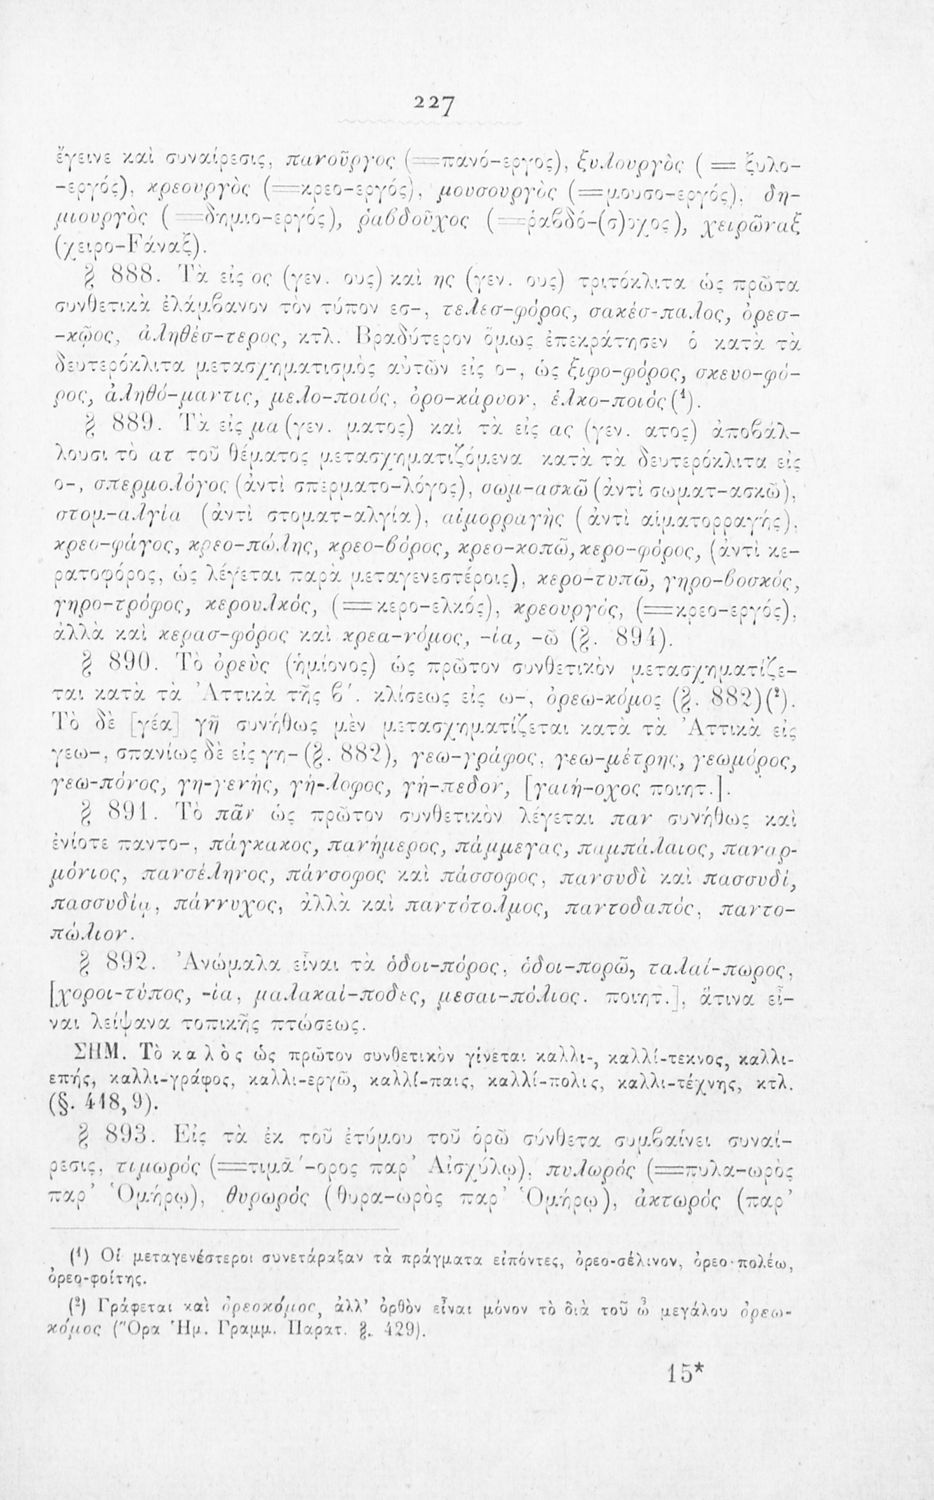 227
ἔγεινε καὶ συναίρεσις, πανοῦργος (=πανό-εργος), ξυλουργὸς (= ξυλο-
-εργός), κρεουργὸς (=κρεο-εργός), μουσουργὸς (=μουσο-εργός), δη-
μιουργὸς (=δημιο-εργός), ῥαβδοῦχος (=ῥαβδό-(σ)οχος), χειρῶναξ
(χειρο-Fάναξ).
§ 888. Τὰ εἰς ος (γεν. ους) καὶ ης (γεν. ους) τριτόκλιτα ὡς πρῶτα
συνθετικὰ ἐλάμβανον τὸν τύπον εσ-, τελεσ-φόρος, σακέσ-παλος, ὀρεσ-
-κῷος, ἀληθέσ-τερος, κτλ. Βραδύτερον ὅμως ἐπεκράτησεν ὁ κατὰ τὰ
δευτερόκλιτα μετασχηματισμὸς αὐτῶν εἰς ο-, ὡς ξιφο-φόρος, σκευο-φό-
ρος, ἀληθό-μαντις, μελο-ποιός, ὀρο-κάρυον, ἑλκο-ποιός(¹).
§ 889. Τὰ εἰς μα (γεν. ματος) καὶ τὰ εἰς ας (γεν. ατος) ἀποβάλ-
λουσι τὸ ατ τοῦ θέματος μετασχηματιζόμενα κατὰ τὰ δευτερόκλιτα εἰς
ο-, σπερμολόγος (ἀντὶ σπερματο-λόγος), σωμ-ασκῶ (ἀντὶ σωματ-ασκῶ),
στομ-αλγία (ἀντὶ στοματ-αλγία), αἱμορραγὴς (ἀντὶ αἱματορραγής),
κρεο-φάγος, κρεο-πώλης, κρεο-βόρος, κρεο-κοπῶ, κερο-φόρος, (ἀντὶ κε-
ρατοφόρος, ὡς λέγεται παρὰ μεταγενεστέροις), κερο-τυπῶ, γηρο-βοσκός,
γηρο-τρόφος, κερουλκός, (=κερο-ελκός), κρεουργός, (=κρεο-εργός),
ἀλλὰ καὶ κερασ-φόρος καὶ κρεα-νόμος, -ία, -ῶ (§. 894).
§ 890. Τὸ ὀρεὺς (ἡμίονος) ὡς πρῶτον συνθετικὸν μετασχηματίζε-
ται κατὰ τὰ Ἀττικὰ τῆς β΄. κλίσεως εἰς ω-, ὀρεω-κόμος (§. 882)(²).
Τὸ δὲ [γέα] γῆ συνήθως μὲν μετασχηματίζεται κατὰ τὰ Ἀττικὰ εἰς
γεω-, σπανίως δὲ εἰς γη- (§. 882), γεω-γράφος, γεω-μέτρης, γεωμόρος,
γεω-πόνος, γη-γενής, γή-λοφος, γή-πεδον, [γαιή-οχος ποιητ.].
§ 891. Τὸ πᾶν ὡς πρῶτον συνθετικὸν λέγεται παν συνήθως καὶ
ἐνίοτε παντο-, πάγκακος, πανήμερος, πάμμεγας, παμπάλαιος, παναρ-
μόνιος, πανσέληνος, πάνσοφος καὶ πάσσοφος, πανσυδὶ καὶ πασσυδί,
πασσυδίᾳ, πάννυχος, ἀλλὰ καὶ παντότολμος, παντοδαπός, παντο-
πώλιον.
§ 892. Ἀνώμαλα εἶναι τὰ ὁδοι-πόρος, ὁδοι-πορῶ, ταλαί-πωρος,
[χοροι-τύπος, -ία, μαλακαί-ποδες, μεσαι-πόλιος. ποιητ.], ἅτινα εἶ-
ναι λείψανα τοπικῆς πτώσεως.
ΣΗΜ. Τὸ καλὸς ὡς πρῶτον συνθετικὸν γίνεται καλλι-, καλλί-τεκνος, καλλι-
επής, καλλι-γράφος, καλλι-εργῶ, καλλί-παις, καλλί-πολις, καλλι-τέχνης, κτλ.
(§. 418,9).
§ 893. Εἰς τὰ ἐκ τοῦ ἐτύμου τοῦ ὁρῶ σύνθετα συμβαίνει συναί-
ρεσις, τιμωρός (=τιμᾱ΄-ορος παρ' Αἰσχύλῳ), πυλωρός (=πυλα-ωρὸς
παρ' Ὁμήρῳ), θυρωρός (θυρα-ωρὸς παρ' Ὁμήρῳ), ἀκτωρός (παρ'
(¹) Οἱ μεταγενέστεροι συνετάραξαν τὰ πράγματα εἰπόντες, ὀρεο-σέλινον, ὀρεο-πολέω,
ὀρεο-φοίτης.
(²) Γράφεται καὶ ὀρεοκόμος, ἀλλ' ὀρθὸν εἶναι μόνον τὸ διὰ τοῦ ω μεγάλου ὀρεω-
κόμος (Ὅρα Ἡμ. Γραμμ. Παρατ. §. 429).
15*